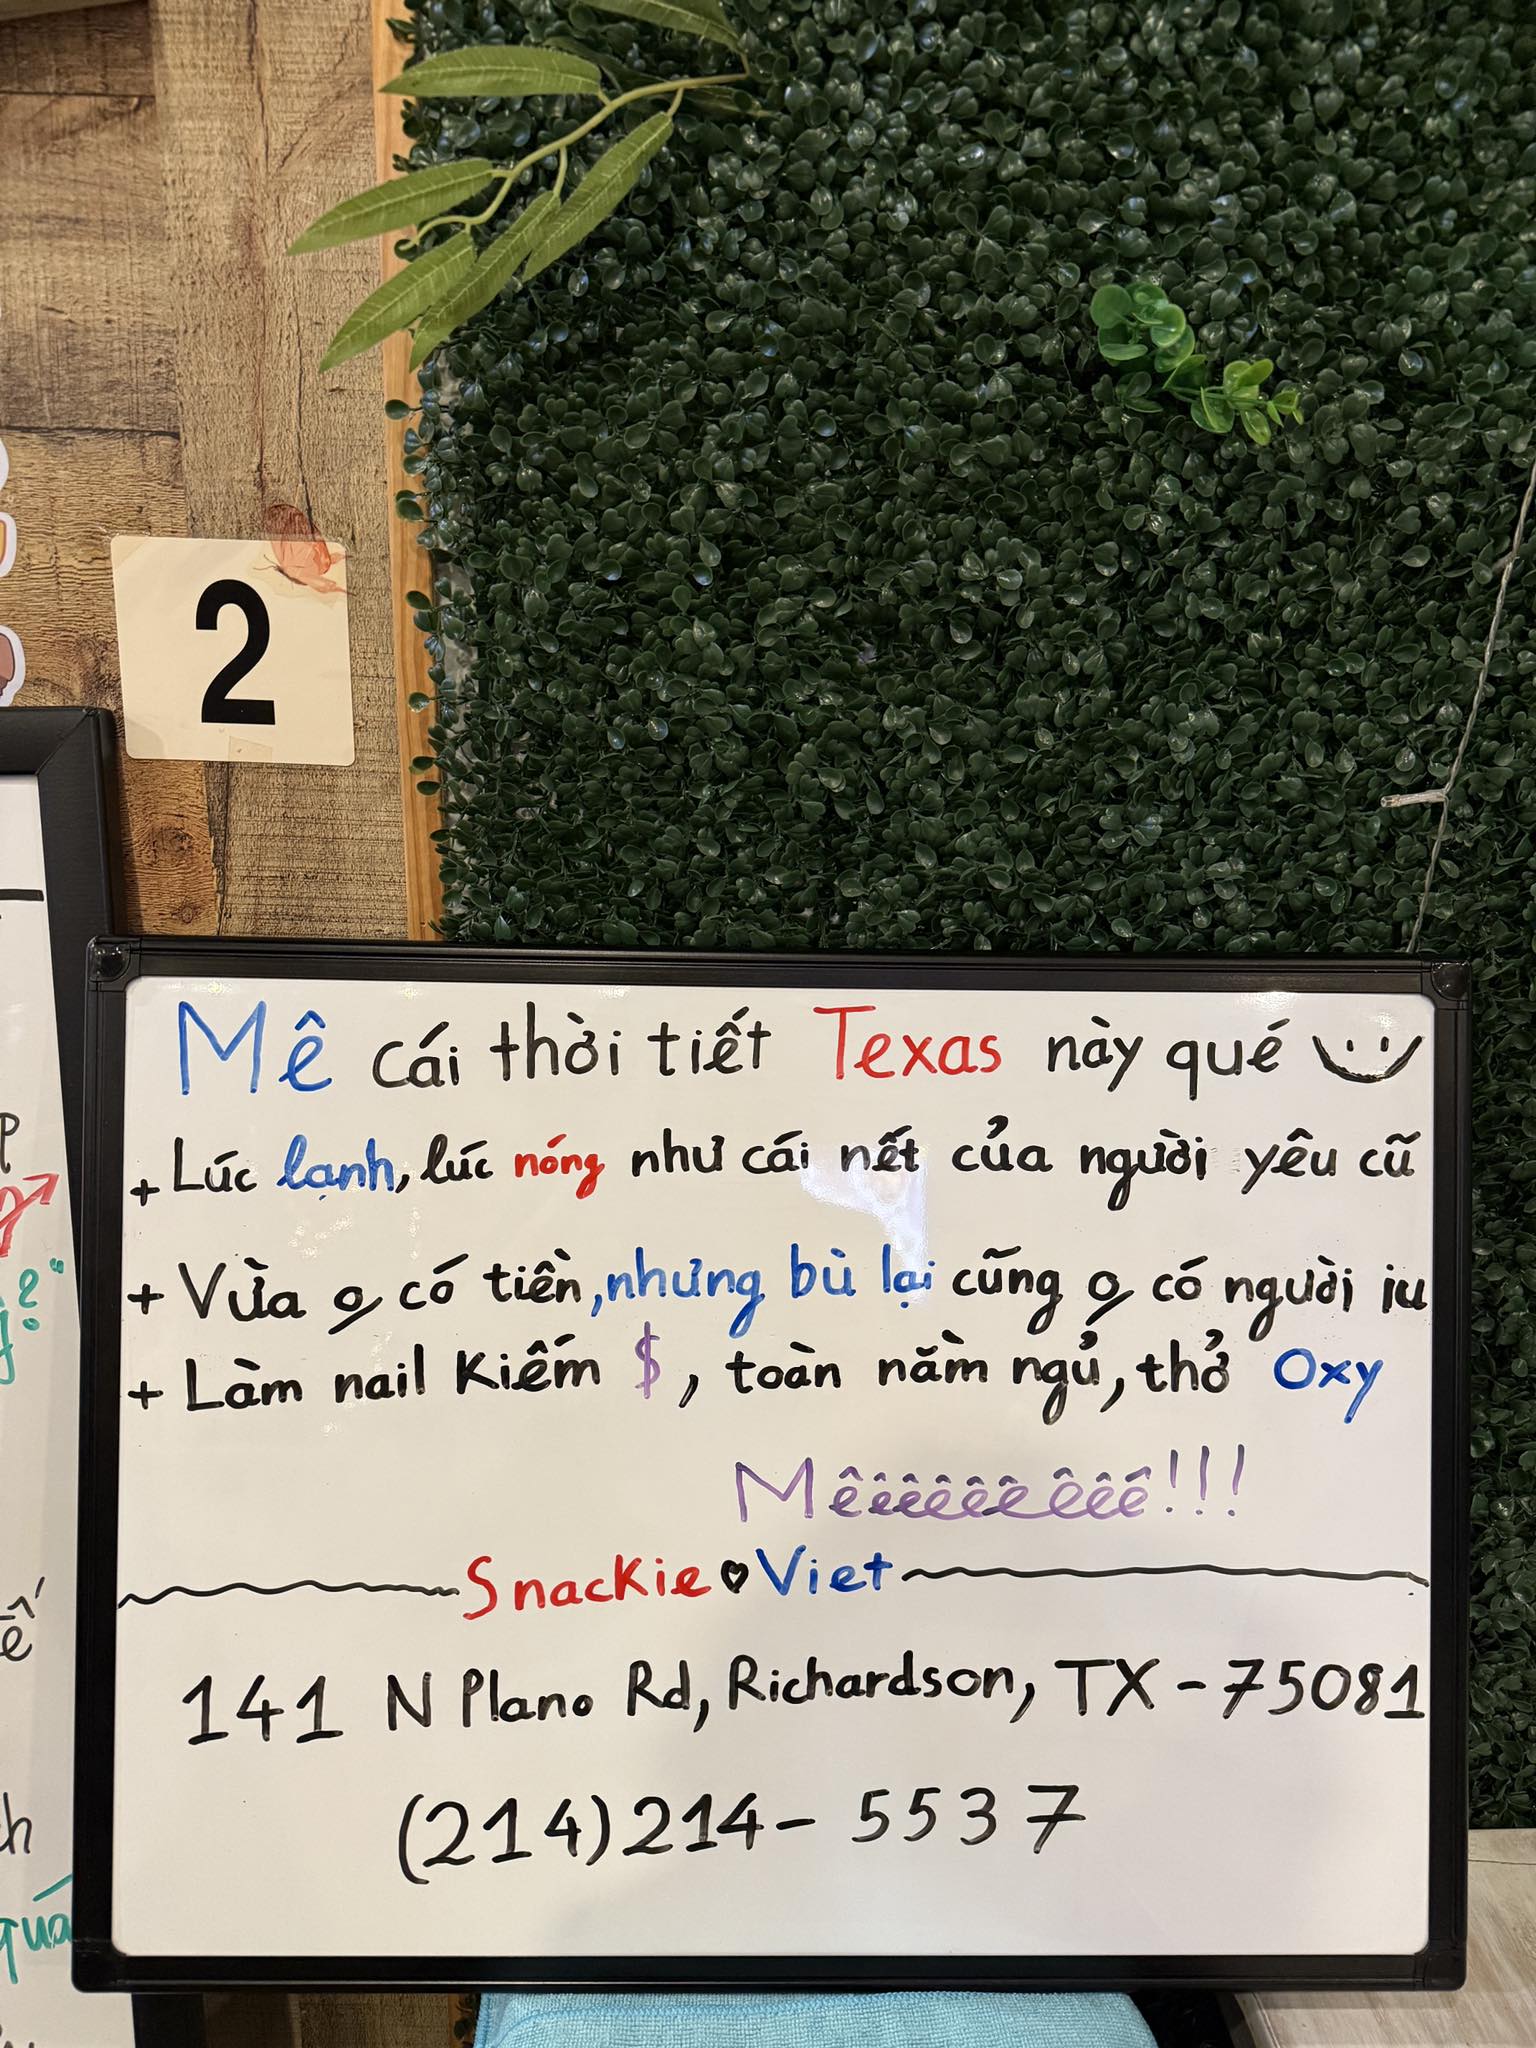 2
Mê cái thời tiết Texas này qué
+ Lúc lạnh, lúc nóng như cái nết của người yêu cũ
+ Vừa o có tiền, nhưng bù lại cũng o có người iu
+ Làm nail kiếm $, toàn nằm ngủ, thở Oxy
Mêêêêêêêêê!!!
Snackie Viet
141 N Plano Rd, Richardson, TX - 75081
(214) 214 - 5537
quá